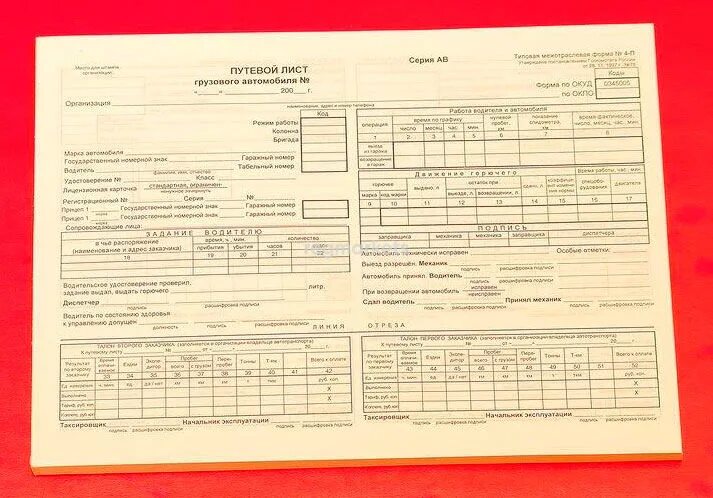 Место для штампа организации
Серия АВ
Типовая межотраслевая форма № 4-П
Утверждена постановлением Госкомстата России
от 28. 11. 1997 г. №78
ПУТЕВОЙ ЛИСТ
грузового автомобиля №
«____» ________ 200___ г.
Коды
Форма по ОКУД 0345005
по ОКПО
Организация
наименование, адрес и номер телефона
Код
Режим работы
Колонна
Бригада
Марка автомобиля
Государственный номерной знак Гаражный номер
Водитель Табельный номер
фамилия, имя, отчество
Удостоверение № Класс
Лицензионная карточка стандартная, ограничен-
ненужное зачеркнуть
Регистрационный № Серия №
Прицеп 1 Государственный номерной знак Гаражный номер
марка
Прицеп 2 Государственный номерной знак Гаражный номер
марка
Сопровождающие лица:
Работа водителя и автомобиля
операция время по графику нулевой пробег, км показание спидометра, км время фактическое, число, месяц, час, мин.
число месяц час. мин.
1 2 3 4 5 6 7 8
выезд из гаража
возвращение в гараж
Движение горючего Время работы, час. мин.
горючее выдано, л остаток при сдано, л коэффициент изменения нормы спецоборудования двигателя
марка код марки выезде, л возвращении, л
9 10 11 12 13 14 15 16 17
ЗАДАНИЕ ВОДИТЕЛЮ
в чьё распоряжение (наименование и адрес заказчика) время, ч., мин. количество
прибытия убытия часов ездок
18 19 20 21 22
ПОДПИСЬ
заправщика механика механика заправщика диспетчера
Водительское удостоверение проверил, задание выдал, выдать горючего литр.
Диспетчер
подпись расшифровка подписи
Водитель по состоянию здоровья
к управлению допущен
должность подпись расшифровка подписи
Автомобиль технически исправен Особые отметки:
Выезд разрешён. Механик
подпись расшифровка подписи
Автомобиль принял. Водитель
подпись расшифровка подписи
При возвращении автомобиль исправен
неисправен
Сдал водитель Принял механик
подпись расшифровка подписи подпись расшифровка подписи
ЛИНИЯ ОТРЕЗА
ТАЛОН ВТОРОГО ЗАКАЗЧИКА (заполняется в организации-владельце автотранспорта)
К путевому листу № от «___» 20__ г.
Результат по второму заказчику Время оплачиваемое Ездки Экспедитор Пробег Перепробег Тонны Т-км Всего к оплате
всего с грузом
33 34 35 36 37 38 39 40 41 42
Ед. измерения ч. мин. ед. да / нет км км км т т-км руб. коп.
Выполнено X
Тариф, руб. коп. X
К оплате, руб. коп.
Таксировщик Начальник эксплуатации
подпись расшифровка подписи подпись расшифровка подписи
ТАЛОН ПЕРВОГО ЗАКАЗЧИКА (заполняется в организации-владельце автотранспорта)
К путевому листу № от «___» 20__ г.
Результат по первому заказчику Время оплачиваемое Ездки Экспедитор Пробег Перепробег Тонны Т-км Всего к оплате
всего с грузом
43 44 45 46 47 48 49 50 51 52
Ед. измерения ч. мин. ед. да / нет км км км т т-км руб. коп.
Выполнено X
Тариф, руб. коп. X
К оплате, руб. коп.
Таксировщик Начальник эксплуатации
подпись расшифровка подписи подпись расшифровка подписи